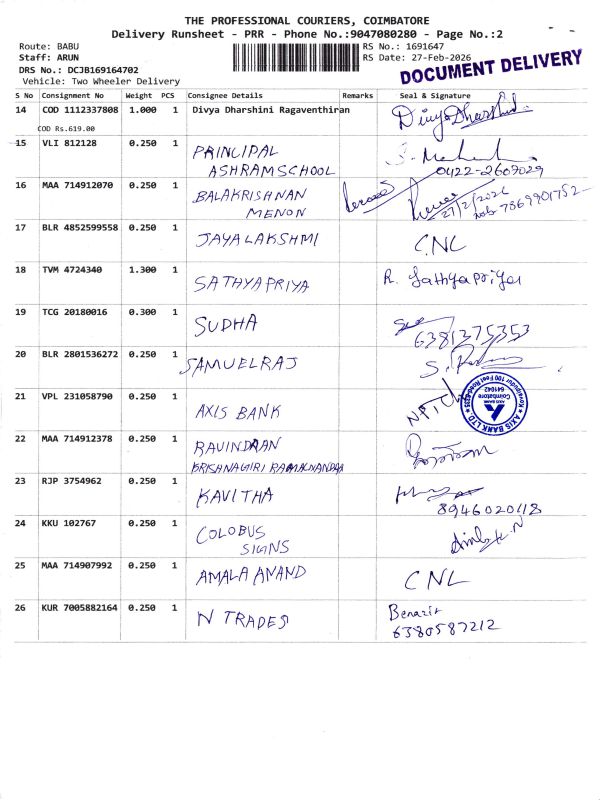 THE PROFESSIONAL COURIERS, COIMBATORE
Delivery Runsheet - PRR - Phone No.:9047080280 - Page No.:2
Route: BABU
RS No.: 1691647
Staff: ARUN
RS Date: 27-Feb-2026
DRS No.: DCJB169164702
Vehicle: Two Wheeler Delivery
DOCUMENT DELIVERY
S No Consignment No Weight PCS Consignee Details Remarks Seal & Signature
14 COD 1112337808 1.000 1 Divya Dharshini Ragaventhiran
COD Rs.619.00
15 VLI 812128 0.250 1 PRINCIPAL
ASHRAM SCHOOL 0422-2609029
16 MAA 714912070 0.250 1 BALAKRISHNAN
MENON 27/2/2026
7869901752
17 BLR 4852599558 0.250 1 JAYALAKSHMI CNL
18 TVM 4724340 1.300 1 SATHYAPRIYA R. Sathyapriya
19 TCG 20180016 0.300 1 SUDHA 6381375353
20 BLR 2801536272 0.250 1 SAMUELRAJ
21 VPL 231058790 0.250 1 AXIS BANK
AXIS BANK LTD
Coimbatore
641042
22 MAA 714912378 0.250 1 RAVINDRAN
KRISHNAGIRI RAMACHANDRA
23 RJP 3754962 0.250 1 KAVITHA
8946020118
24 KKU 102767 0.250 1 COLOBUS
SIGNS
25 MAA 714907992 0.250 1 AMALA ANAND CNL
26 KUR 7005882164 0.250 1 N TRADES Benazir
6380587212